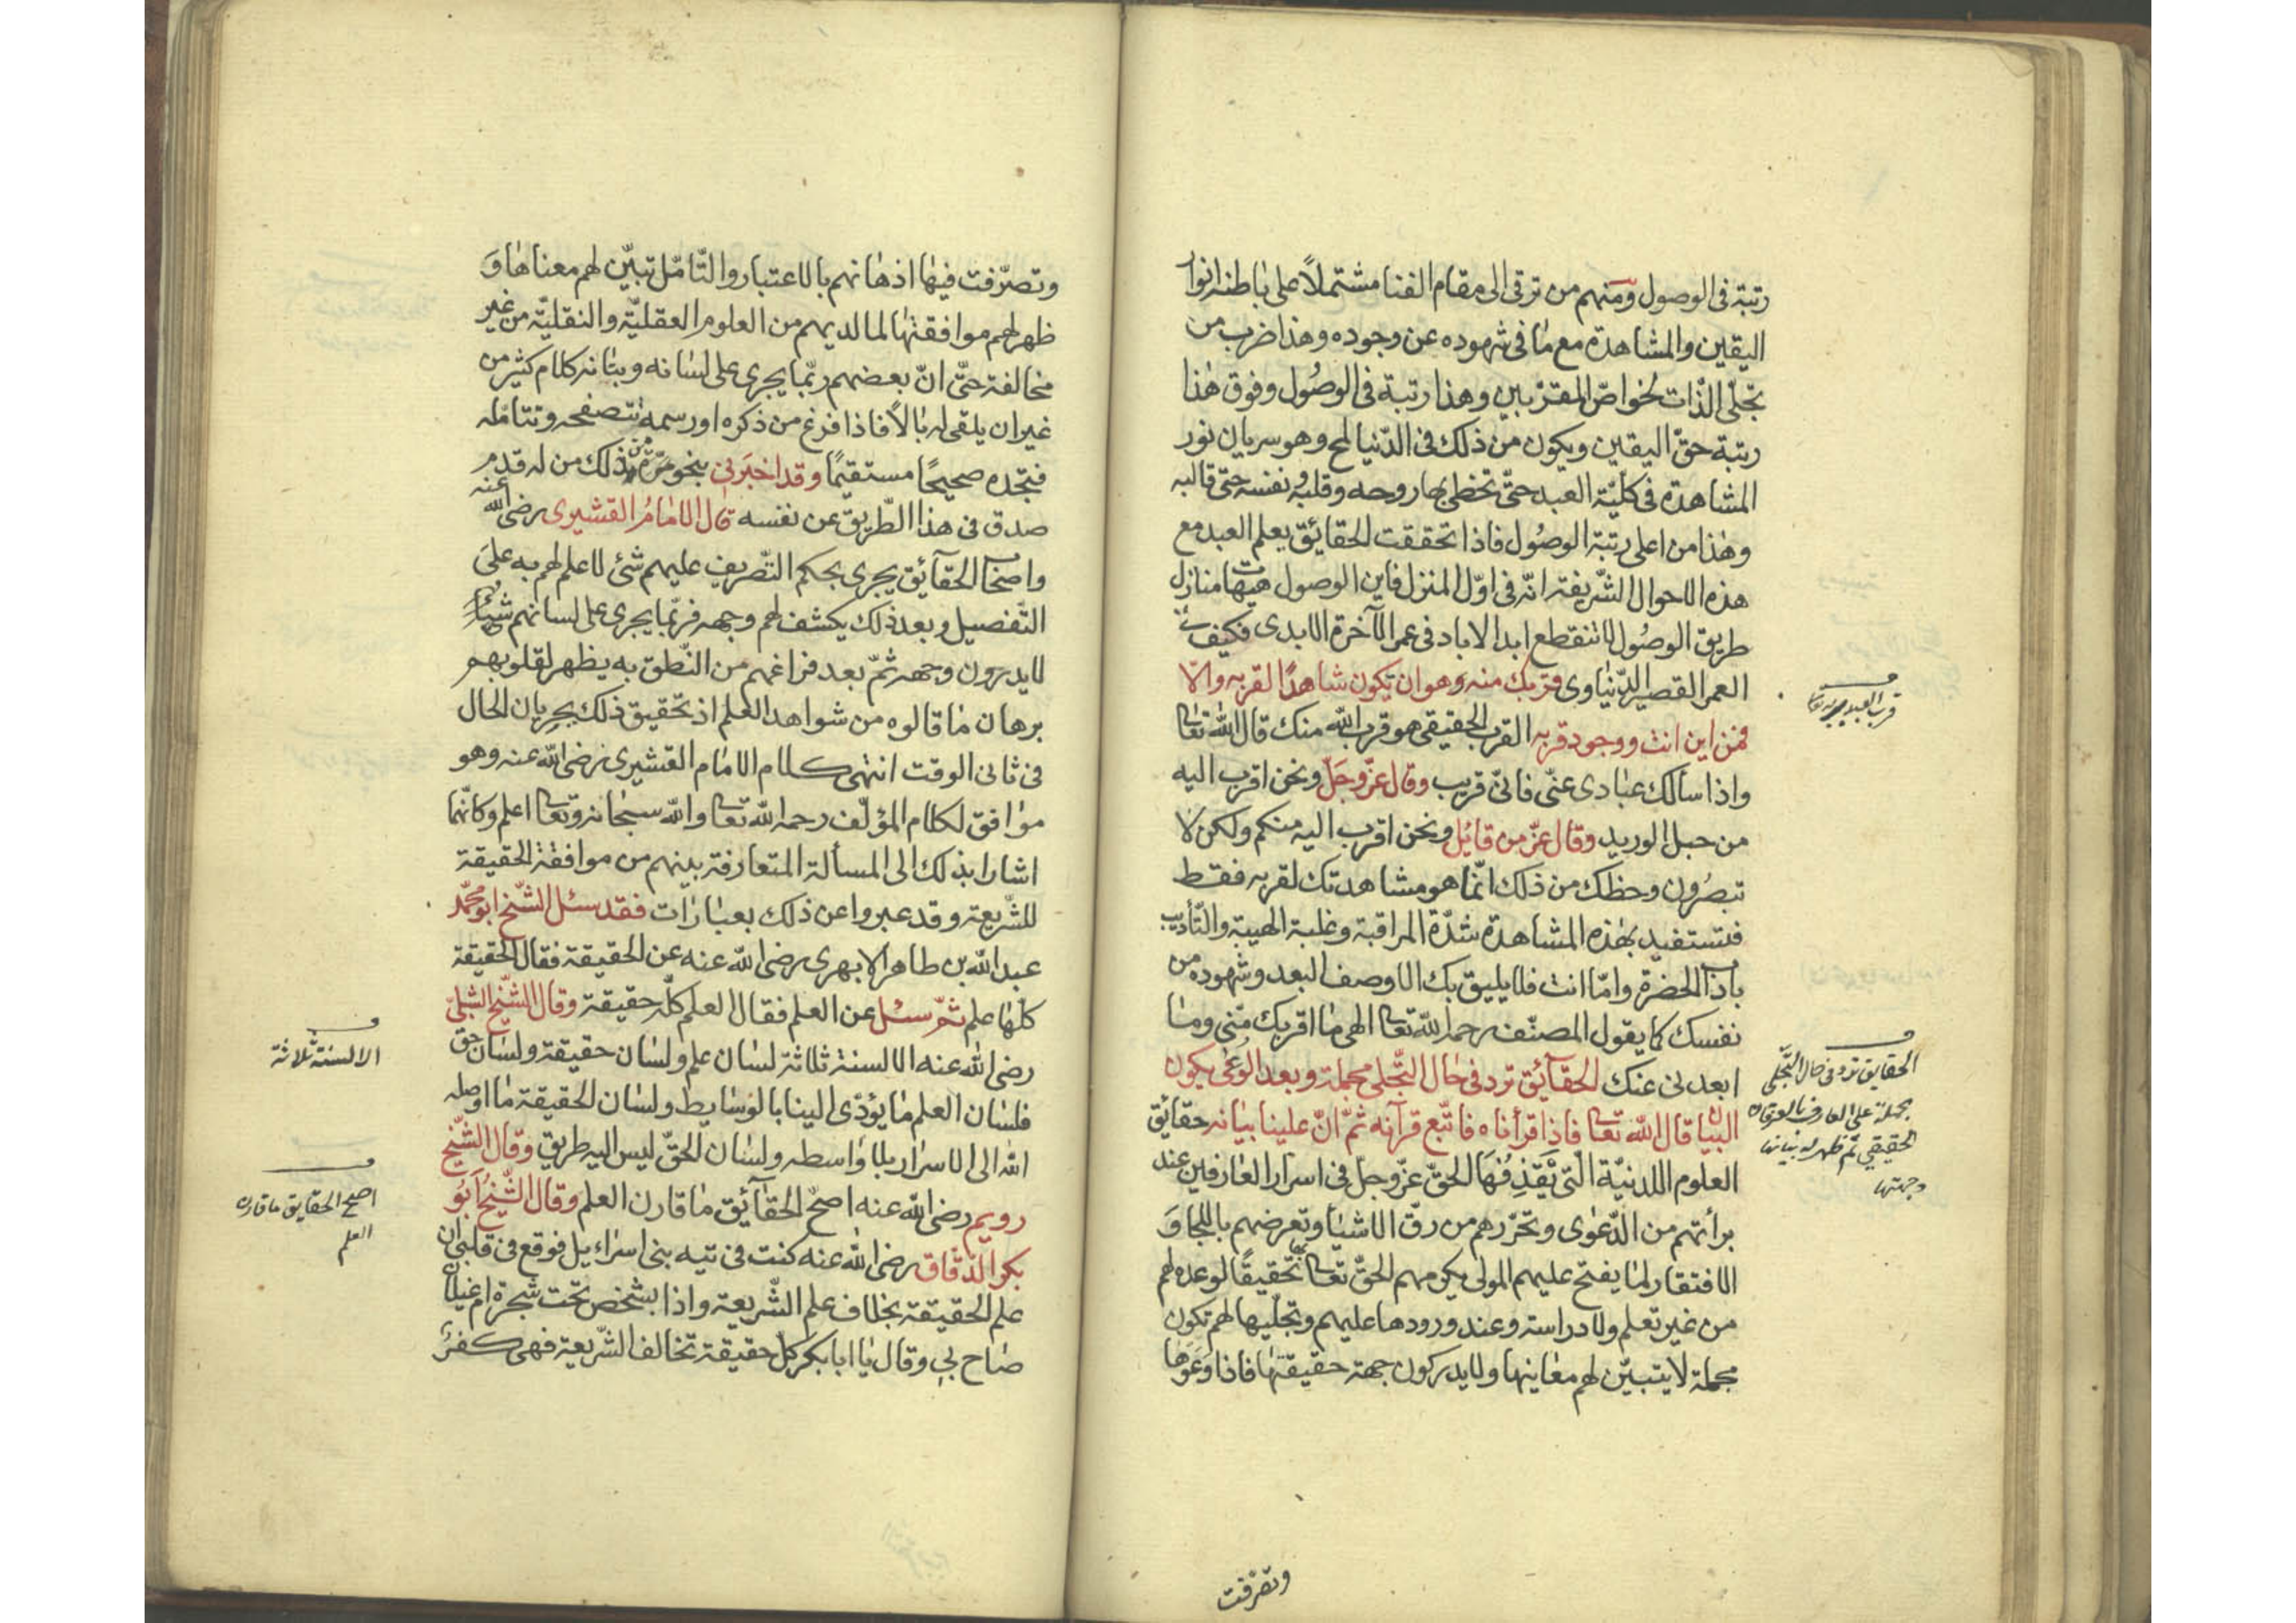 رتبة فى الوصول ومنهم من ترقى الى مقام الفنا مشتملاً على باطنه انوار
اليقين والمشاهدة مع ما فى شهوده عن وجوده وهذا ضرب من
تجلّى الذّات لخواصّ المقرّبين وهذا رتبة فى الوصُول وفوق هذا
رتبة حقّ اليقين ويكون من ذلك فى الدّنيا لمح وهو سريان نور
المشاهدة فى كلّيّة العبد حتّى تخطى بها روحه وقلبه ونفسه حتّى قالبه
وهذا من اعلى رتبة الوصُول فاذا تحققت الحقائق يعلم العبد مع
هذه الاحوال الشّريفة انّه فى اوّل المنزل فاين الوصول هيهات منازل
طريق الوصُول لا تنقطع ابد الاباد فى عمر الآخرة الابدى فكيف
العمر القصير الدّنياوى قربك منه وهو ان تكون شاهدًا لقربه والّا
فمن اين انت ووجود قربه القرب الحقيقى هو قرب الله منك قال الله تعا
واذا سألك عبادى عنّى فانّى قريب وقال عزّ وجَلّ ونحن اقرب اليه
من حبل الوريد وقال عزّ من قائل ونحن اقرب اليه منكم ولكن لا
تبصُرون وحظك من ذلك انّما هو مشاهدتك لقربه فقط
فتستفيد بهذه المشاهدة شدّة المراقبة وغلبة الهيبة والتّأديب
باداب الحضرة وامّا انت فلا يليق بك الا وصف البعد وشهوده من
نفسك كما يقول المصنّف رحمه الله تعا الهى ما اقربك منّى وما
ابعدنى عنك الحقآئق ترد فى حال التجّلى مجملة وبعد الوَعْى يكون
البيان قال الله تعا فاذا قرأناه فاتّبع قرآنه ثمّ انّ علينا بيانه حقائق
العلوم اللدنيّة الّتى يَقذِفُهَا الحقّ عزّ وجلّ فى اسرار العارفين عند
برأتهم من الدّعوى وتحرّرهم من رقّ الاشيا وتعرضهم باللجاوَ
الافتقار لما يفتح عليهم المولى يكرمهم الحقّ تعا تحقيقًا لوعده لهم
من غير تعلم ولا دراسة وعند ورودها عليهم وتجلّيها لهم تكون
مجملة لا يتبيّن لهم معانيها ولا يدركون جهة حقيقتها فاذا وَعَوْها
قرب العبد
الحقايق ترد فى حال التّجلى
مجملة على العارف بالعرفان
الحقيقي ثم ظهر له بيانها
وجهتها
وتصرّفت
وتصرّفت فيها اذهانهم بالاعتبار والتّامّل تبيّن لهم معناها وَ
ظهر لهم موافقتها لما لديهم من العلوم العقليّة والنقليّة من غير
مخالفة حتّى انّ بعضهم ربّما يجرى على لسانه وبنانه كلام كثير من
غير ان يلقى له بالاً فاذا فرغ من ذكره او رسمه تتصفحه وتتامّله
فتجّده صحيحًا مستقيمًا وقد اخبَرنى بنحو من ذلك من له قدم
صدق فى هذا الطّريق عن نفسه قال الامامُ القشيرى رضى الله عنه
واصحاب الحقآئق يجرى بحكم التّصريف عليهم شئ لا علم لهم به على
التّفصيل وبعد ذلك يكشف لهم وجهه فربّما يجرى على لسانهم شئ
لا يدرون وجهه ثمّ بعد فراغهم من النّطق به يظهر لقلوبهم
برهان ما قالوه من شواهد العلم اذ تحّقيق ذلك بجريان الحال
فى ثانى الوقت انتهى كلام الامام القشيرى رضى الله عنه وهو
موافق لكلام المؤلّف رحمه الله تعا والله سبحانه وتعا اعلم وكانّهما
اشارا بذلك الى المسألة المتعارفة بينهم من موافقة الحقيقة
للشّريعة وقد عبروا عن ذلك بعبارات فقد سئل الشّيخ ابو محمّد
عبد الله بن طاهر الابهرى رضى الله عنه عن الحقيقة فقال الحقيقة
كلّها علم ثمّ سئل عن العلم فقال العلم كلّه حقيقة وقال الشّيخ الشبلىّ
رضى الله عنه الالسنة ثلاثة لسان علم ولسان حقيقة ولسان حق
فلسان العلم ما يؤدّى الينا بالوسايط ولسان الحقيقة ما اوصله
الله الى الاسرار بلا واسطه ولسان الحقّ ليس اليه طريق وقال الشّيخ
رويم رضى الله عنه اصحّ الحقآئق ما قارن العلم وقال الشّيخُ ابُو
بكر الدّقّاق رضى الله عنه كنت فى تيه بنى اسرائيل فوقع فى قلبى ان
علم الحقيقة بخلاف علم الشّريعة واذا بشخص تحت شجرة ام غيلان
صاح بى وقال يا ابا بكر كل حقيقة تخالف الشّريعة فهى كفرٌ
الالسنة ثلاثة
اصح الحقايق ما قارن
العلم